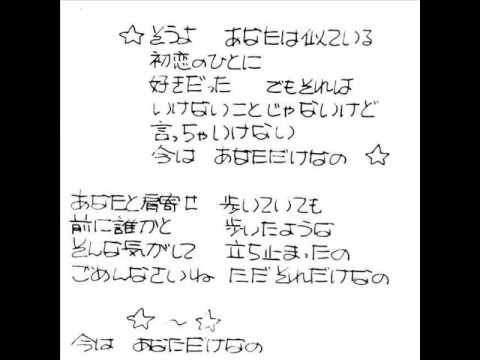 ☆そうよ　あなたは似ている
初恋のひとに
好きだった　でもそれは
いけないことじゃないけど
言っちゃいけない
今は　あなただけなの　☆
あなたと肩寄せ　歩いていても
前に誰かと　歩いたような
そんな気がして　立ち止まったの
ごめんなさいね　ただそれだけなの
☆～☆
今は　あなただけなの